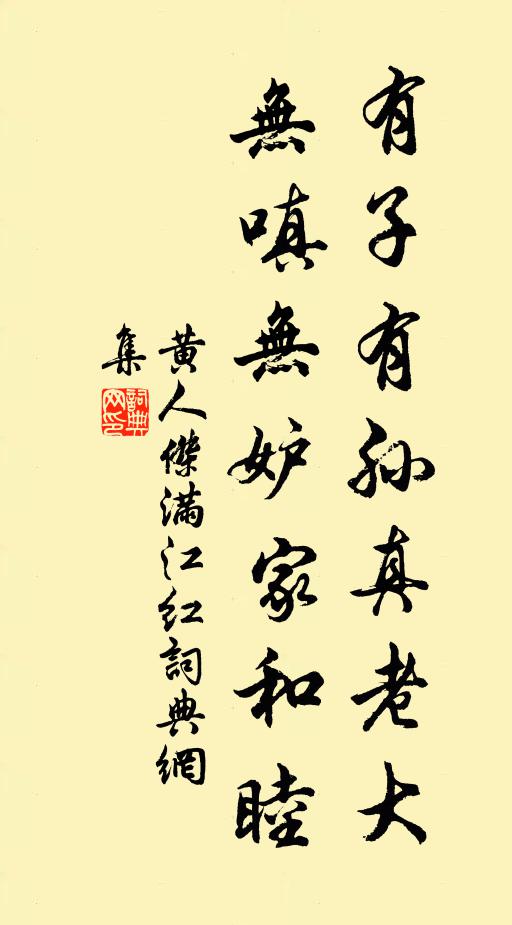 有子有孙真老大
無嗔無妒家和睦
黄人傑满江红詞典網
集
詞典网印